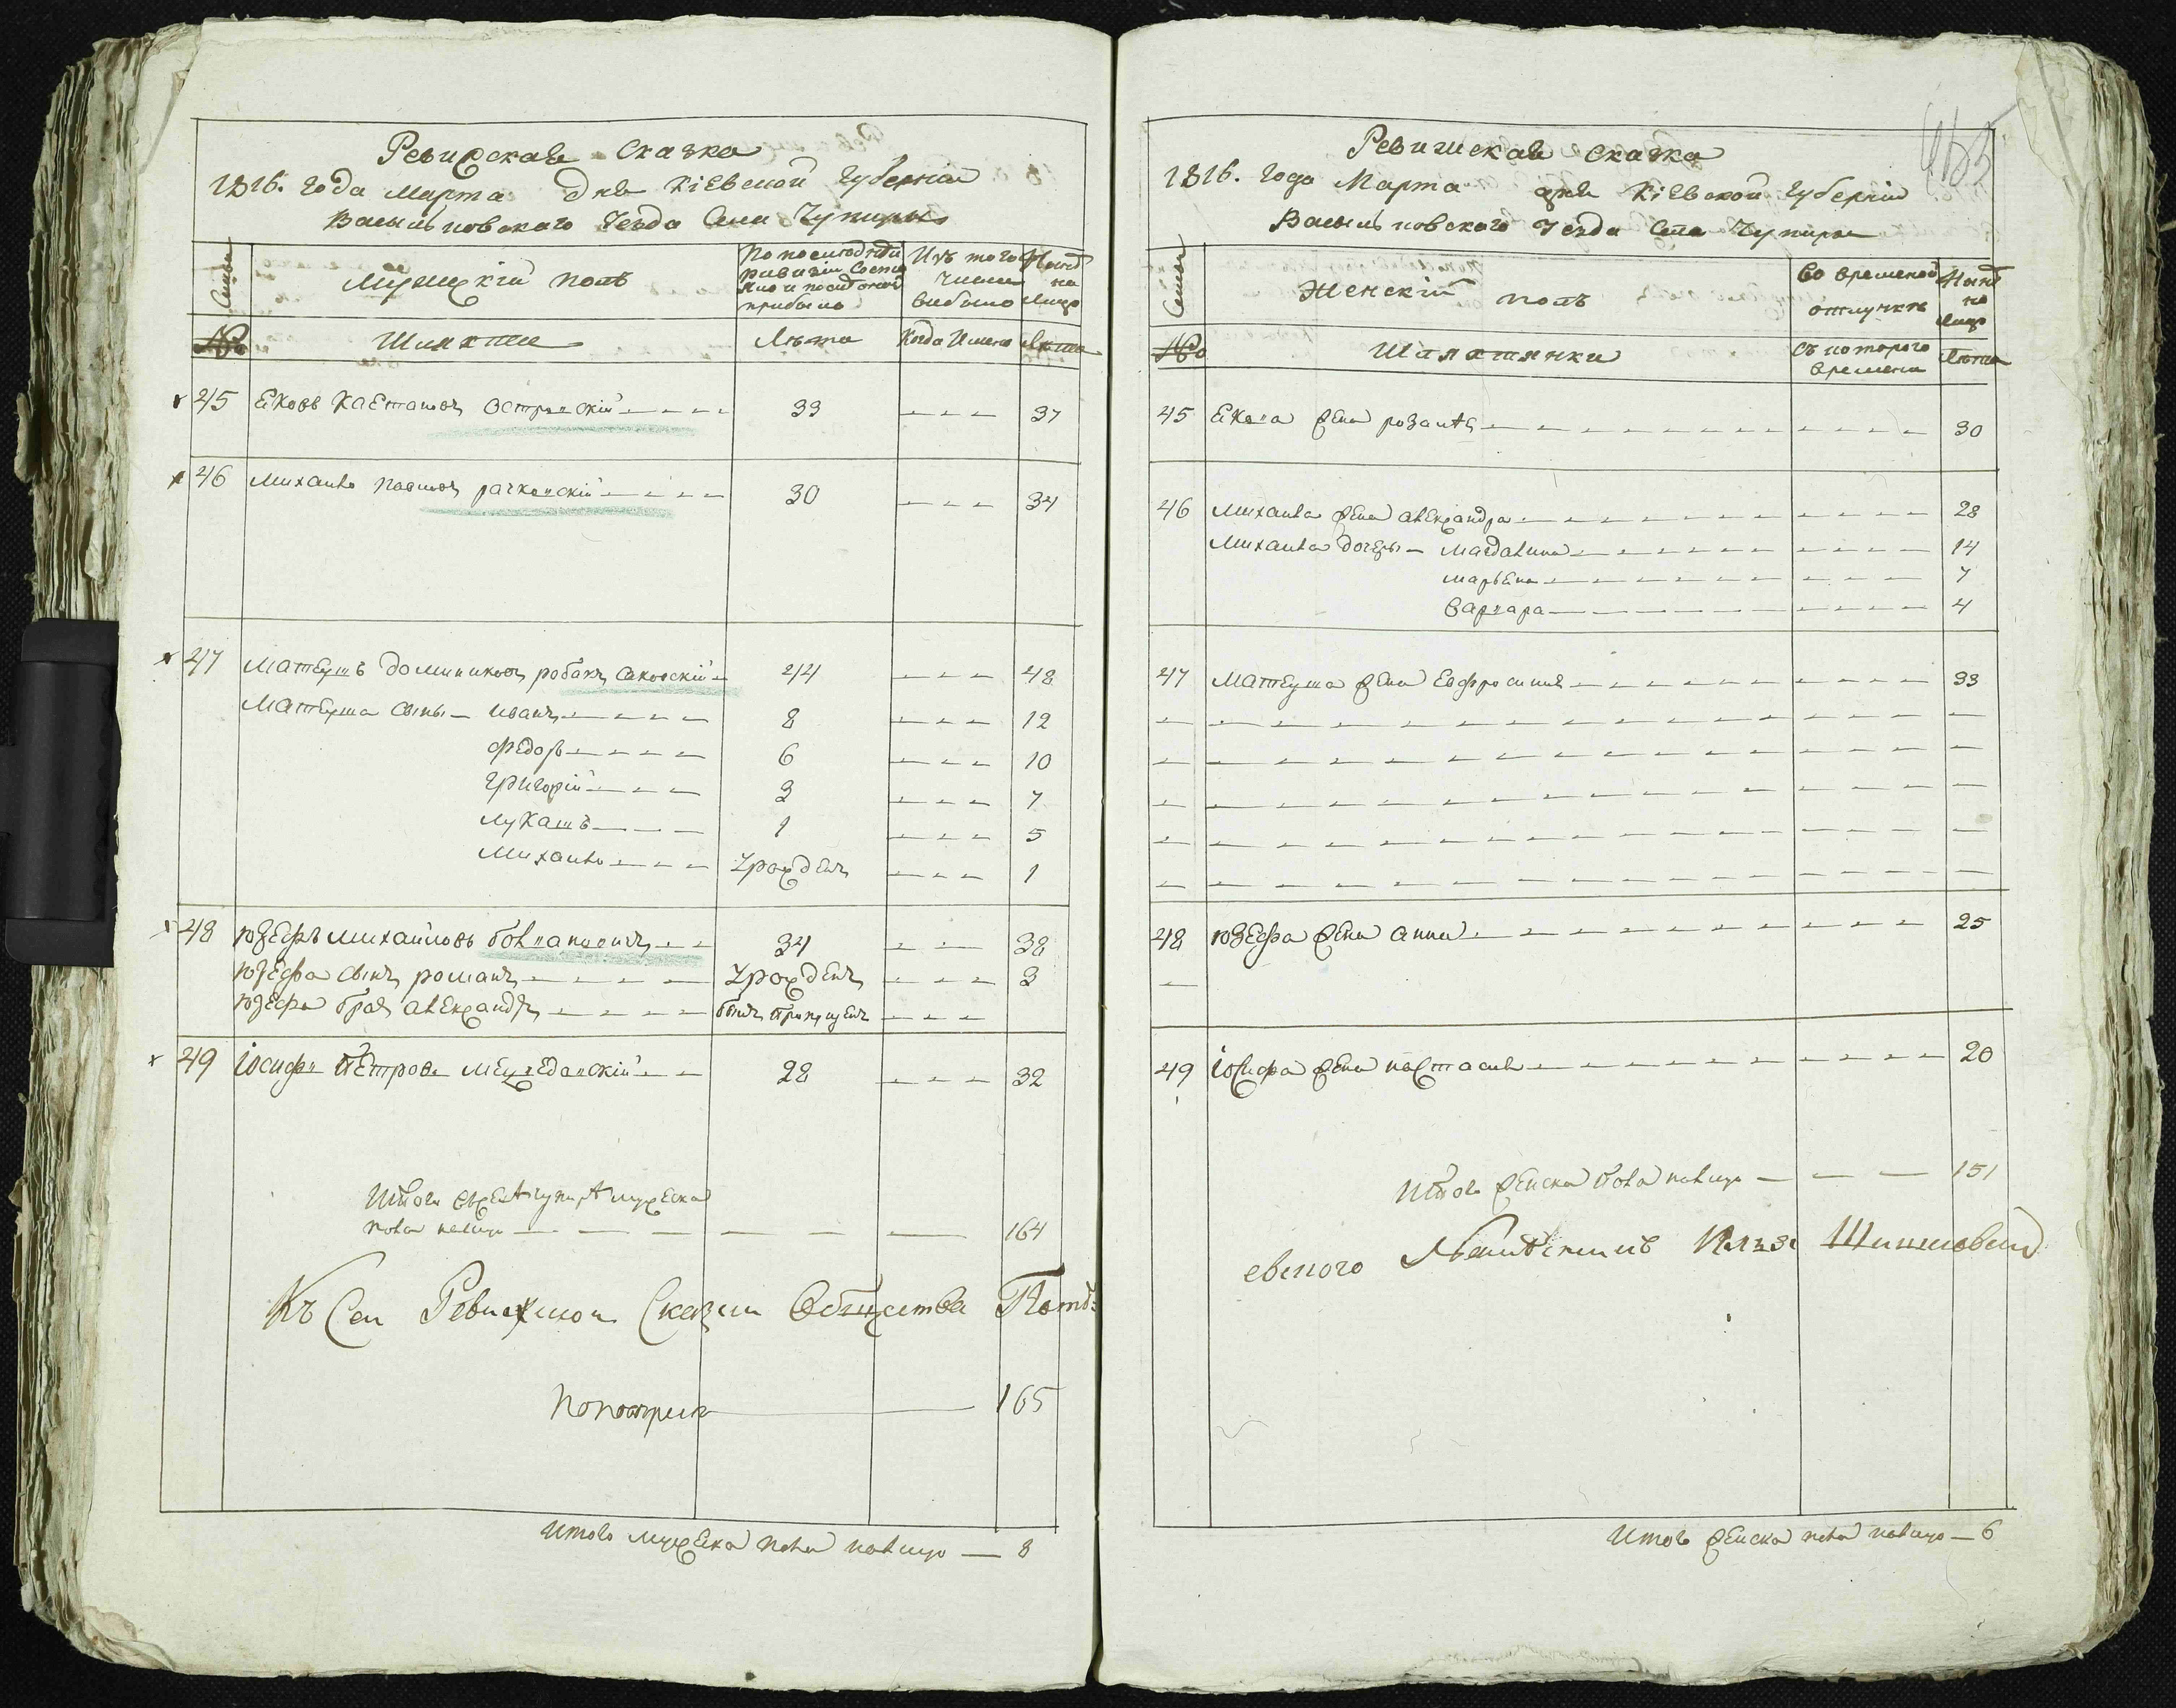 Ревизская Сказка
1816. Года Марта дня Кіевской Губерніи
Васильковского Уезда Села Чупиры
Семьи
Мужескій полъ
По последней ревизіи состояло и после оной прибыло
Изъ того числа выбыло
Ныне на лицо
№
Шляхта
Лета
Когда именно
Лета
45 Яковъ Каетановъ Островскій 33 37
46 Михаилъ Павловъ рачковскій 30 34
47 Матеушъ доминиковъ робакъ саковскій 44 48
Матеуша сыны иванъ 8 12
федоръ 6 10
Григорій 3 7
лукашъ 1 5
Михаилъ Урожденъ 1
48 юзефъ михайловъ 34 38
юзефа сынъ романъ Урожденъ 3
юзефа братъ александръ былъ пропущенъ
49 іосифъ Петровъ 28 32
Итого мужеска
пола налицо 164
Къ Сей Ревизской Сказки Общества
165
Итого мужеска пола налицо — 8
Ревижская сказка
1816. Года Марта дня Кіевской Губерніи
Васильковского Уезда Села Чупиры
Семьи
Женскій полъ
Во временной отлучке
Ныне на лицо
№
Шляхтянки
Съ которого времени
Лета
45 Якова жена розалія 30
46 Михаила жена александра 28
Михаила дочери магдалина 14
марьяна 7
варвара 4
47 Матеуша жена Ефросинія 33
48 юзефа жена анна 25
49 іосифа жена настасія 20
Итого женска пола налицо 151
Итого женска пола налицо — 6